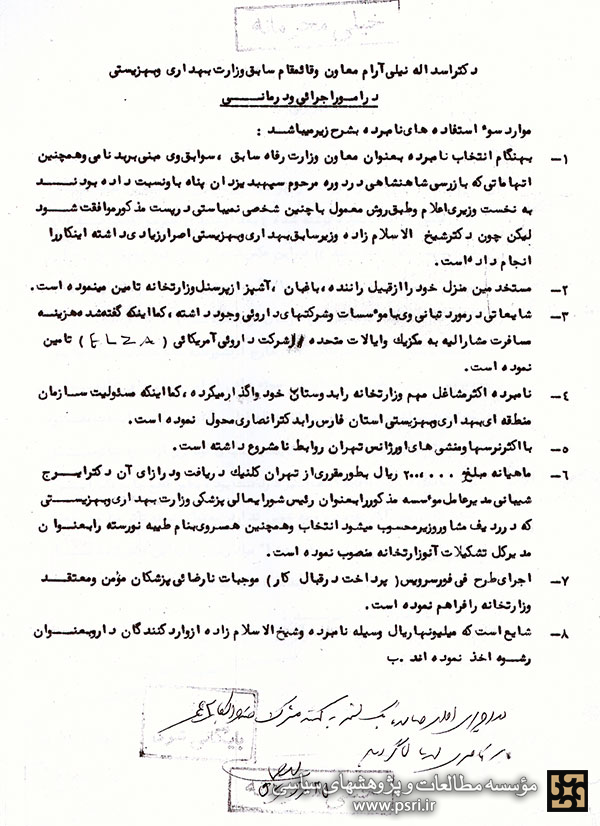 خیلی محرمانه
دکتر اسداله نیلی آرام معاون وقائمقام سابق وزارت بهداری وبهزیستی
در امور اجرائی ودرمانی
موارد سوء استفاده های نامبرده بشرح زیر میباشد :
۱- بهنگام انتخاب نامبرده بعنوان معاون وزارت رفاه سابق ، سوابق وی مبنی بر بد نامی وهمچنین
اتهاماتی که بازرسی شاهنشاهی در دوره مرحوم سپهبد یزدان پناه باونسبت داده بودند
به نخست وزیری اعلام وطبق روش معمول با چنین شخصی نمیبایستی در پست مذکور موافقت شود
لیکن چون دکتر شیخ الاسلام زاده وزیر سابق بهداری وبهزیستی اصرار زیادی داشته اینکار را
انجام داده است.
۲- مستخدمین منزل خود را از قبیل راننده ، باغبان ، آشپز از پرسنل وزارتخانه تامین مینموده است.
۳- شایعاتی در مورد تبانی وی با موءسسات وشرکتهای داروئی وجود داشته ، کما اینکه گفته شده هزینه
مسافرت مشارالیه به مکزیک وایالات متحده را شرکت داروئی آمریکائی ( ELZA ) تامین
نموده است.
۴- نامبرده اکثر مشاغل مهم وزارتخانه را بدوستان خود واگذار میکرده ، کما اینکه مسئولیت سازمان
منطقه ای بهداری وبهزیستی استان فارس را بدکتر انصاری محول نموده است.
۵- با اکثر نرسها ومنشی های اورژانس تهران روابط نامشروع داشته است.
۶- ماهیانه مبلغ ۲۰۰،۰۰۰ ریال بطور مقرری از تهران کلنیک دریافت ودر ازای آن دکتر ایرج
شیبانی مدیر عامل موءسسه مذکور را بعنوان رئیس شورایعالی پزشکی وزارت بهداری وبهزیستی
که در ردیف مشاور وزیر محسوب میشود انتخاب وهمچنین همسر وی بنام طیبه نورسته را بعنوان
مدیر کل تشکیلات آنوزارتخانه منصوب نموده است.
۷- اجرای طرح فی فور سرویس ( پرداخت در قبال کار ) موجبات نارضائی پزشکان موءمن ومعتقد
وزارتخانه را فراهم نموده است.
۸- شایع است که میلیونها ریال وسیله نامبرده وشیخ الاسلام زاده از وارد کنندگان دارو بعنوان
رشوه اخذ نموده اند . ب
بایگانی شود
مؤسسه مطالعات و پژوهشهای سیاسی
www.psri.ir